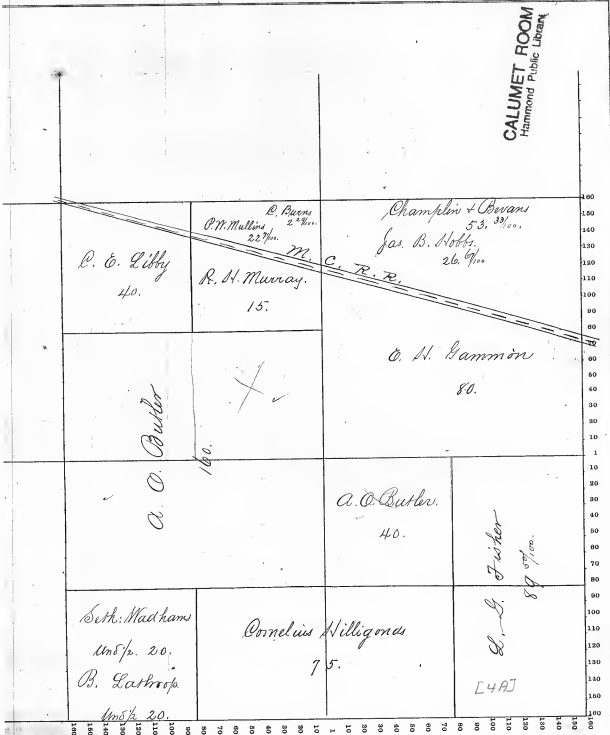 CALUMET ROOM
Hammond Public Library
C. Burns
2 29/100.
P. W. Mullins
22 71/100.
Champlin & Bevans
53. 33/100.
Jas. B. Hobbs.
26. 67/100
M. C. R. R.
C. E. Libby
40.
R. H. Murray.
15.
E. H. Gammon
80.
A. O. Butler
160.
A. O. Butler.
40.
L. G. Fisher
89 50/100.
Seth: Wadhams
Und 1/2. 20.
B. Lathrop.
Und 1/2 20.
Cornelius Hilligonds
75.
[4A]
160
150
140
130
120
110
100
90
80
70
60
50
40
30
20
10
1
10
20
30
40
50
60
70
80
90
100
110
120
130
140
150
160
160
150
140
130
120
110
100
90
80
70
60
50
40
30
20
10
1
10
20
30
40
50
60
70
80
90
100
110
120
130
140
150
160